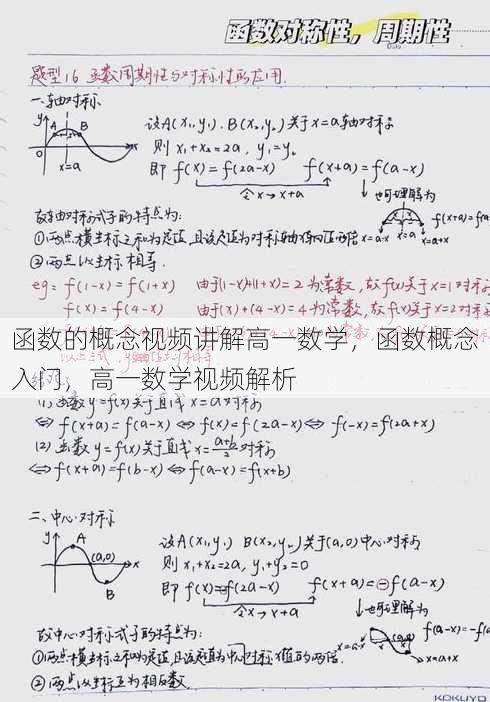 函数对称性，周期性
Date
题型16 函数周期性与对称性的应用
一、轴对称
y A B 设A(x₁,y₁)、B(x₂,y₂)关于x=a轴对称
0 x 则 x₁+x₂=2a, y₁=y₂
x=a 即 f(x)=f(2a-x) f(x+a)=f(a-x)
令x→x+a 也可理解为
故轴对称式子的特点为: x=a-x x=a+x f(x+a)=f(a
①两点横坐标之和为定值,且该定值为对称轴横向值的两倍
②两点纵坐标相等.
eg= f(1-x)=f(1+x) 由于(1-x)+(1+x)=2为常数,故f(x)关于x=1对称
f(x)=f(4-x) 由于(x)+(4-x)=4为常数,故f(x)关于x=2对称
函数的概念视频讲解高一数学，函数概念
入门，高一数学视频解析
(1)函数y=f(x)关于直线x=a对称
⇔f(x+a)=f(a-x)⇔f(x)=f(2a-x)⇔f(-x)=f(2a+x)
(2)函数y=f(x)关于直线x=a+b/2对称
⇔f(x+a)=f(b-x)⇔f(a-x)=f(x+b)
二、中心对称
y A (a,0) B x 设A(x₁,y₁) B(x₂,y₂)关于(a,0)中心对称
则x₁+x₂=2a, y₁+y₂=0
即f(x)=-f(2a-x) f(x+a)=-f(a-x)
令x→x+a 也可理解为
故中心对称式子的特点为: x=a-x (a,0) x=a+x f(a-x)=-f(a
①两点横坐标之和为定值,且该定值为中心对称横值的两倍.
②两点纵坐标互为相反数
KOKUYO